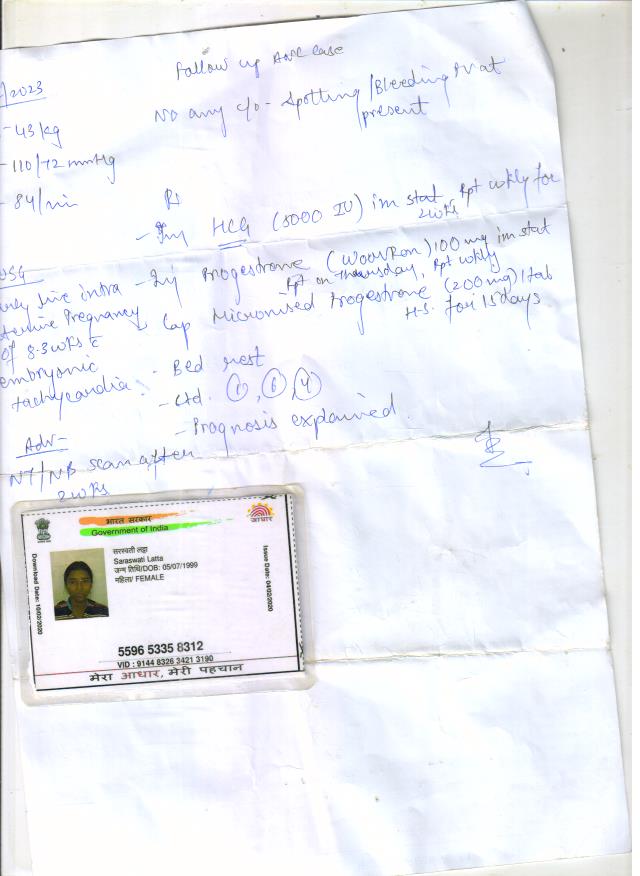 Follow up ANC case
/2023
No any c/o - Spotting/Bleeding PV at present
- 43 kg
- 110/72 mmHg
- 84/min
Rx
- Inj HCG (5000 IU) im stat, Rpt wkly for 2 wks
USG
- Inj Progestrone ( ) 100 mg im stat
- Rpt on Thursday, Rpt wkly
live intra
uterine Pregnancy
of 8.3 wks c
embryonic
tachycardia.
- Cap Micronised Progestrone (200 mg) 1 tab H.S. for 15 days
- Bed rest
- Ctd. 1, 6, 4
- Prognosis explained.
Adv-
NT/NB scan after
2 wks
भारत सरकार
Government of India
आधार
सरस्वती लट्टा
Saraswati Latta
जन्म तिथि/DOB: 05/07/1999
महिला/ FEMALE
Download Date: 10/02/2020
Issue Date: 04/02/2020
5596 5335 8312
VID : 9144 8326 3421 3190
मेरा आधार, मेरी पहचान